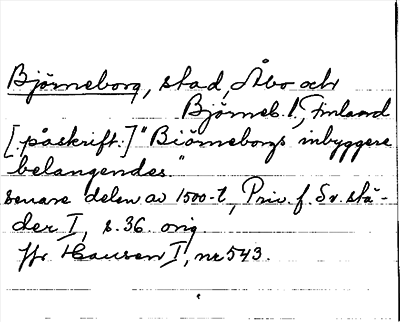 Björneborg, stad, Åbo och
Björneb. l., Finland
[påskrift:] "Biörneborgs inbyggere
belangendes."
senare delen av 1500-t., Priv. f. Sv. stä-
der I, s. 36. orig.
Jfr Hausen I, nr 543.